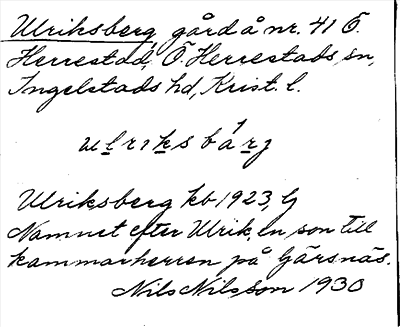 Ulriksberg gård å nr. 41 Ö.
Herrestad, Ö. Herrestads sn,
Ingelstads hd, Krist. l.
ulriksbárj
Ulriksberg kb 1923, G
Namnet efter Ulrik, en son till
kammarherren på Gärsnäs.
Nils Nilsson 1930